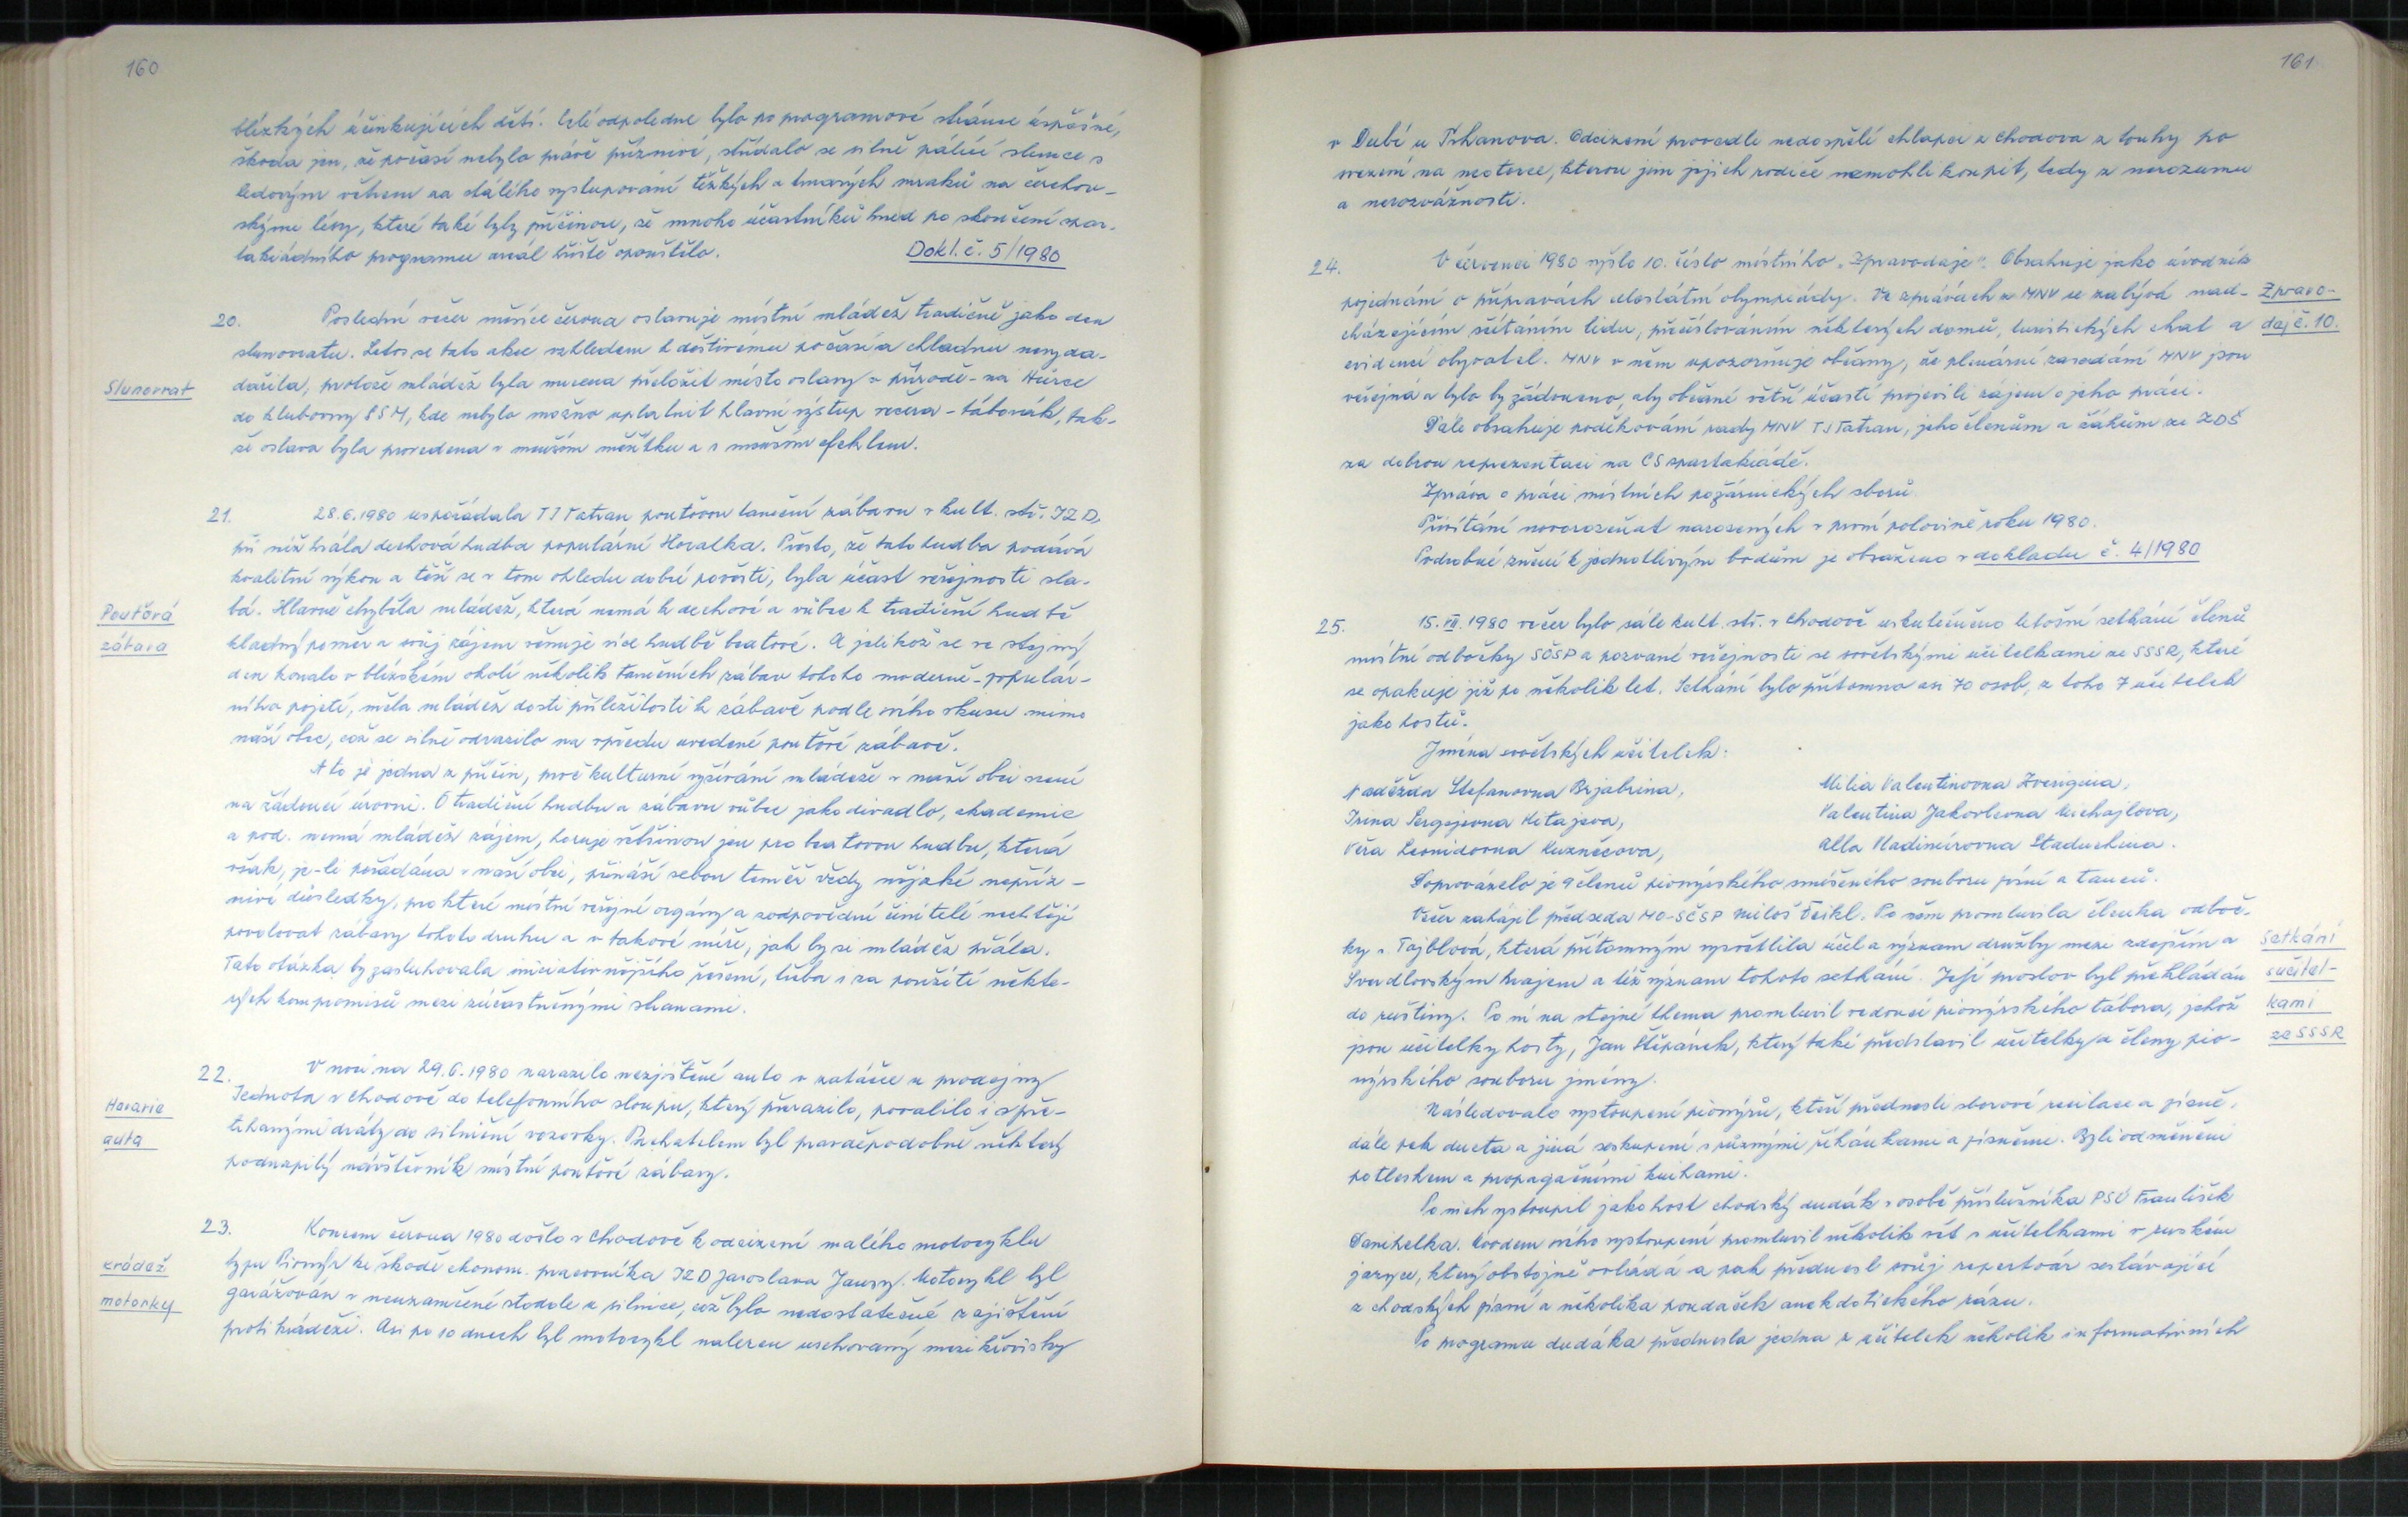 160
blízkých účinkujících dětí. Celé odpoledne bylo po programové stránce úspěšné,
škoda jen, že počasí nebylo právě příznivé, střídalo se silně pálící slunce s
ledovým větrem za stálého vystupování těžkých a tmavých mraků na čerchov-
skýme lesy, které také byly příčinou, že mnoho účastníků hned po skončení spar-
takiádního programu areál hřiště opouštělo. Dokl. č. 5/1980
20. Poslední večer měsíce června oslavuje místní mládež tradičně jako den
slunovratu. Letos se tato akce vzhledem k deštivému počasí a chladnu nevyda-
dařila, protože mládež byla nucena přeložit místo oslavy v přírodě - na Hůrce
Slunovrat
do klubovny SSM, kde nebylo možno uplatnit hlavní výstup večera - táborák, tak-
že oslava byla provedena v menším měřítku a s menším efektem.
21. 28.6.1980 uspořádala TJ Tatran pouťovou taneční zábavu v kult. stř. JZD,
při níž hrála dechová hudba populární Horalka. Přesto, že tato hudba podává
kvalitní výkon a těší se v tom ohledu dobré pověsti, byla účast veřejnosti sla-
bá. Hlavně chyběla mládež, která nemá k dechové a vůbec k tradiční hudbě
Pouťová
zábava
kladný poměr a svůj zájem věnuje více hudbě beatové. A jelikož se ve stejný
den konalo v blízkém okolí několik tanečních zábav tohoto moderně-populár-
ního pojetí, měla mládež dosti příležitosti k zábavě podle svého vkusu mimo
naší obec, což se silně odrazilo na vpředu uvedené pouťové zábavě.
A to je jedna z příčin, proč kulturní vyžívání mládeže v naší obci není
na žádoucí úrovni. O tradiční hudbu a zábavu vůbec jako divadlo, akademie
a pod. nemá mládež zájem, horuje většinou jen pro beatovou hudbu, která
však, je-li pořádána v naší obci, přináší sebou téměř vždy nějaké nepříz-
nivé důsledky, pro které místní veřejné orgány a zodpovědní činitelé nechtějí
povolovat zábavy tohoto druhu a v takové míře, jak by si mládež přála.
Tato otázka by zasluhovala iniciativnějšího řešení, třeba i za použití někte-
rých kompromisů mezi zúčastněnými stranami.
22. V noci na 29.6.1980 narazilo nezjištěné auto v zatáčce u prodejny
Havarie
auta
Jednota v Chodově do telefonního sloupu, který přerazilo, povalilo i s pře-
trhanými dráty do silniční vozovky. Pachatelem byl pravděpodobně některý
podnapilý návštěvník místní pouťové zábavy.
23. Koncem června 1980 došlo v Chodově k odcizení malého motocyklu
krádež
motorky
typu Pionýr ke škodě ekonom. pracovníka JZD Jaroslava Jansy. Motocykl byl
garážován v neuzamčené stodole u silnice, což bylo nedostatečné zajištění
proti krádeži. Asi po 10 dnech byl motocykl nalezen uschovaný mezi křovisky
161
v Dubí u Trhanova. Odcizení provedli nedospělí chlapci z Chodova z touhy po
svezení na motorce, kterou jim jejich rodiče nemohli koupit, tedy z nerozumu
a nerozvážnosti.
24. V červenci 1980 vyšlo 10. číslo místního „Zpravodaje". Obsahuje jako úvodník
pojednání o přípravách celostátní olympiády. Ve zprávách z MNV se zabývá nad-
Zpravo-
daj č. 10.
cházejícím sčítáním lidu, přečíslováním některých domů, turistických chat a
evidencí obyvatel. MNV v něm upozorňuje občany, že plenární zasedání MNV jsou
veřejná a bylo by žádoucno, aby občané větší účastí projevili zájem o jeho práci.
Dále obsahuje poděkování rady MNV TJ Tatran, jeho členům a žákům ze ZDŠ
za dobrou reprezentaci na ČS spartakiádě.
Zpráva o práci místních požárnických sborů.
Přivítání novorozeňat narozených v první polovině roku 1980.
Podrobné znění k jednotlivým bodům je obsaženo v dokladu č. 4/1980
25. 15. VII. 1980 večer bylo sále kult. stř. v Chodově uskutečněno letošní setkání členů
místní odbočky SČSP a pozvané veřejnosti se sovětskými učitelkami ze SSSR, které
se opakuje již po několik let. Setkání bylo přítomno asi 70 osob, z toho 7 učitelek
jako hostů.
Jména sovětských učitelek:
Naděžda Stefanovna Brjabrina, Milia Valentinovna Zverigina,
Irina Sergejevna Kotajeva, Valentina Jakovlevna Michajlova,
Věra Leonidovna Kuzněcova, Alla Vladimírovna Staduchina.
Doprovázelo je 9 členů pionýrského smíšeného souboru písní a tanců.
Večer zahájil předseda MO-SČSP Miloš Feikl. Po něm promluvila členka odboč-
ky s. Tajblová, která přítomným vysvětlila účel a význam družby mezi zdejším a
Setkání
s učitel-
kami
ze SSSR
Sverdlovským krajem a též význam tohoto setkání. Její proslov byl překládán
do ruštiny. Po ní na stejné thema promluvil vedoucí pionýrského tábora, jehož
jsou učitelky hosty, Jan Štěpánek, který také představil učitelky a členy pio-
nýrského souboru jmény.
Následovalo vystoupení pionýrů, kteří přednesli sborové recitace a písně,
dále pak dueta a jiná seskupení s různými říkánkami a písněmi. Byli odměněni
potleskem a propagačními knihami.
Po nich vystoupil jako host chodský dudák v osobě příslušníka PSČ František
Konikelka. Úvodem svého vystoupení promluvil několik vět s učitelkami v ruském
jazyce, který obstojně ovládá a pak přednesl svůj repertoár sestávající
z chodských písní a několika povdaček anekdotického rázu.
Po programu dudáka přednesla jedna z učitelek několik informativních